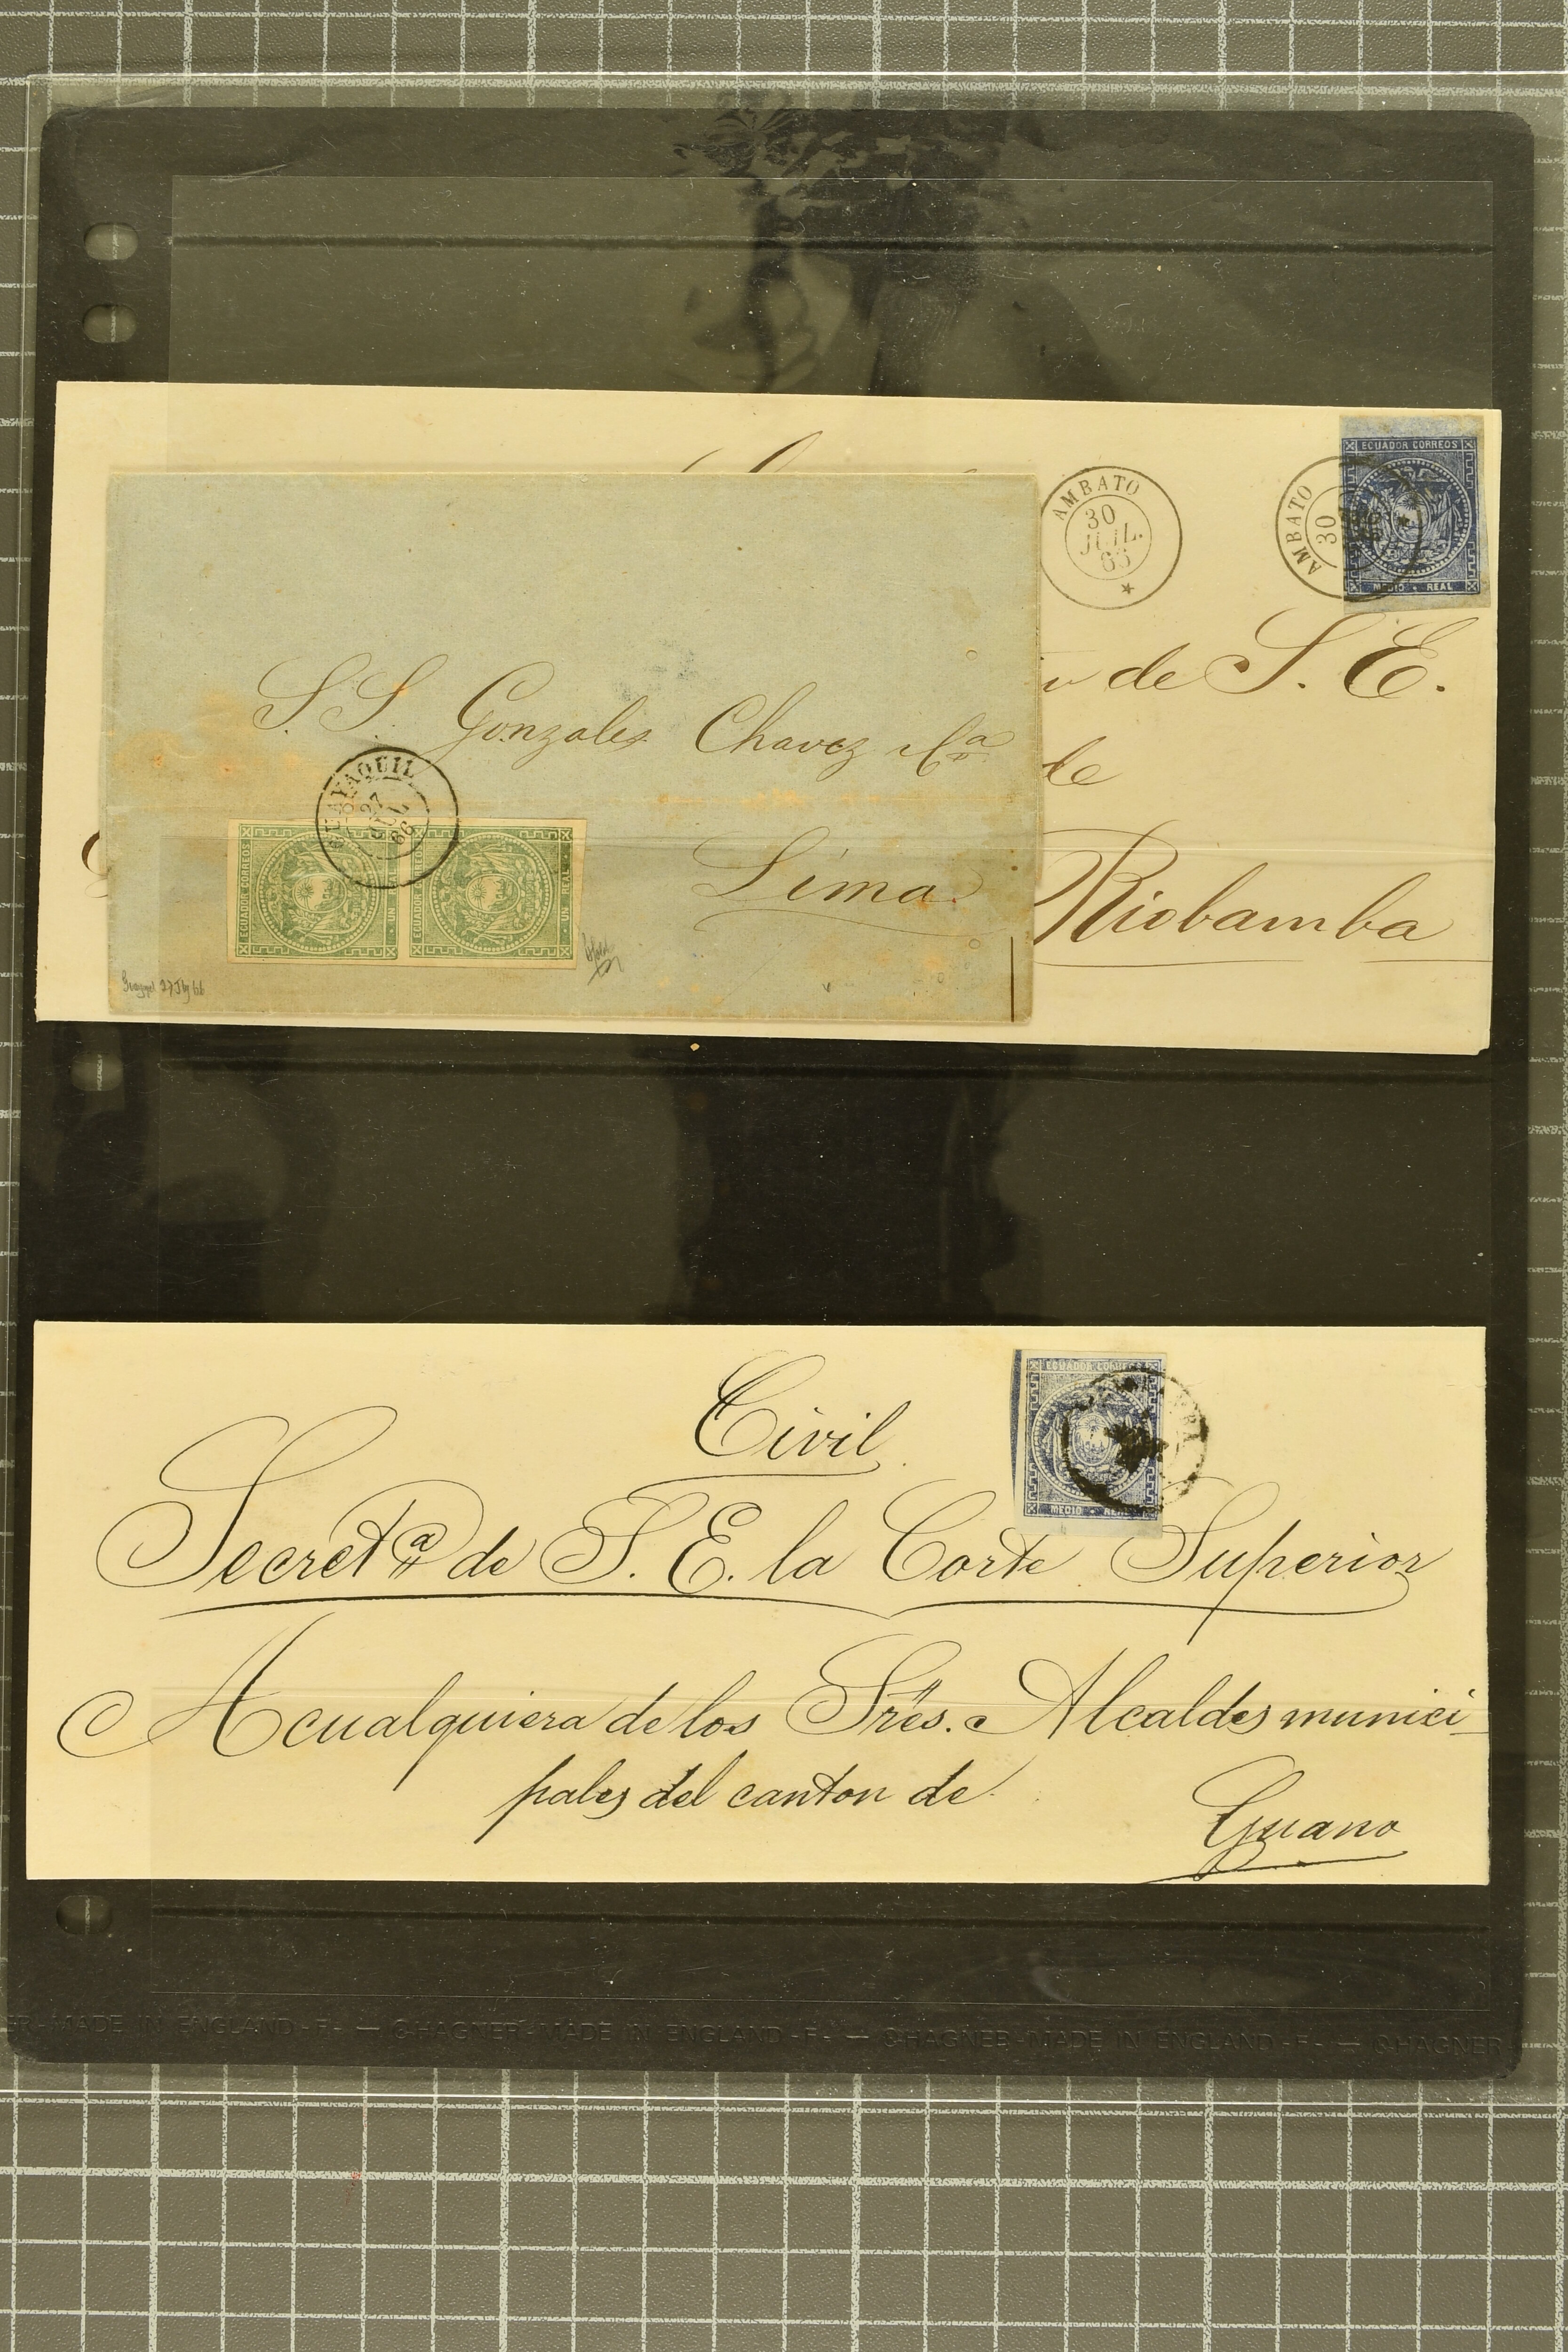 ECUADOR CORREOS
MEDIO REAL
AMBATO
30
JUIL.
AMBATO
30
de S. E.
de
Riobamba
S S. Gonzales Chavez
Lima
GUAYAQUIL
27
JUL
66
ECUADOR CORREOS
ECUADOR CORREOS
UN REAL
27 Jly 66
Civil
ECUADOR CORREOS
MEDIO REAL
Secretª de S. E. la Corte Superior
A cualquiera de los Sres. Alcaldes munici
pales del canton de
Guano
MADE IN ENGLAND -F- — ©HAGNER-MADE IN ENGLAND -F- — ©HAGNER-MADE IN ENGLAND -F- — ©HAGNER